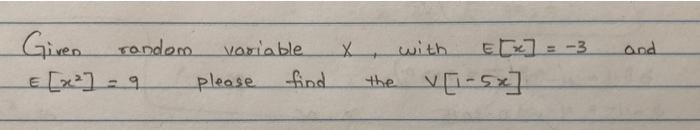 Given random variable X, with E[x] = -3 and
E[x²] = 9 please find the V[1-5x]